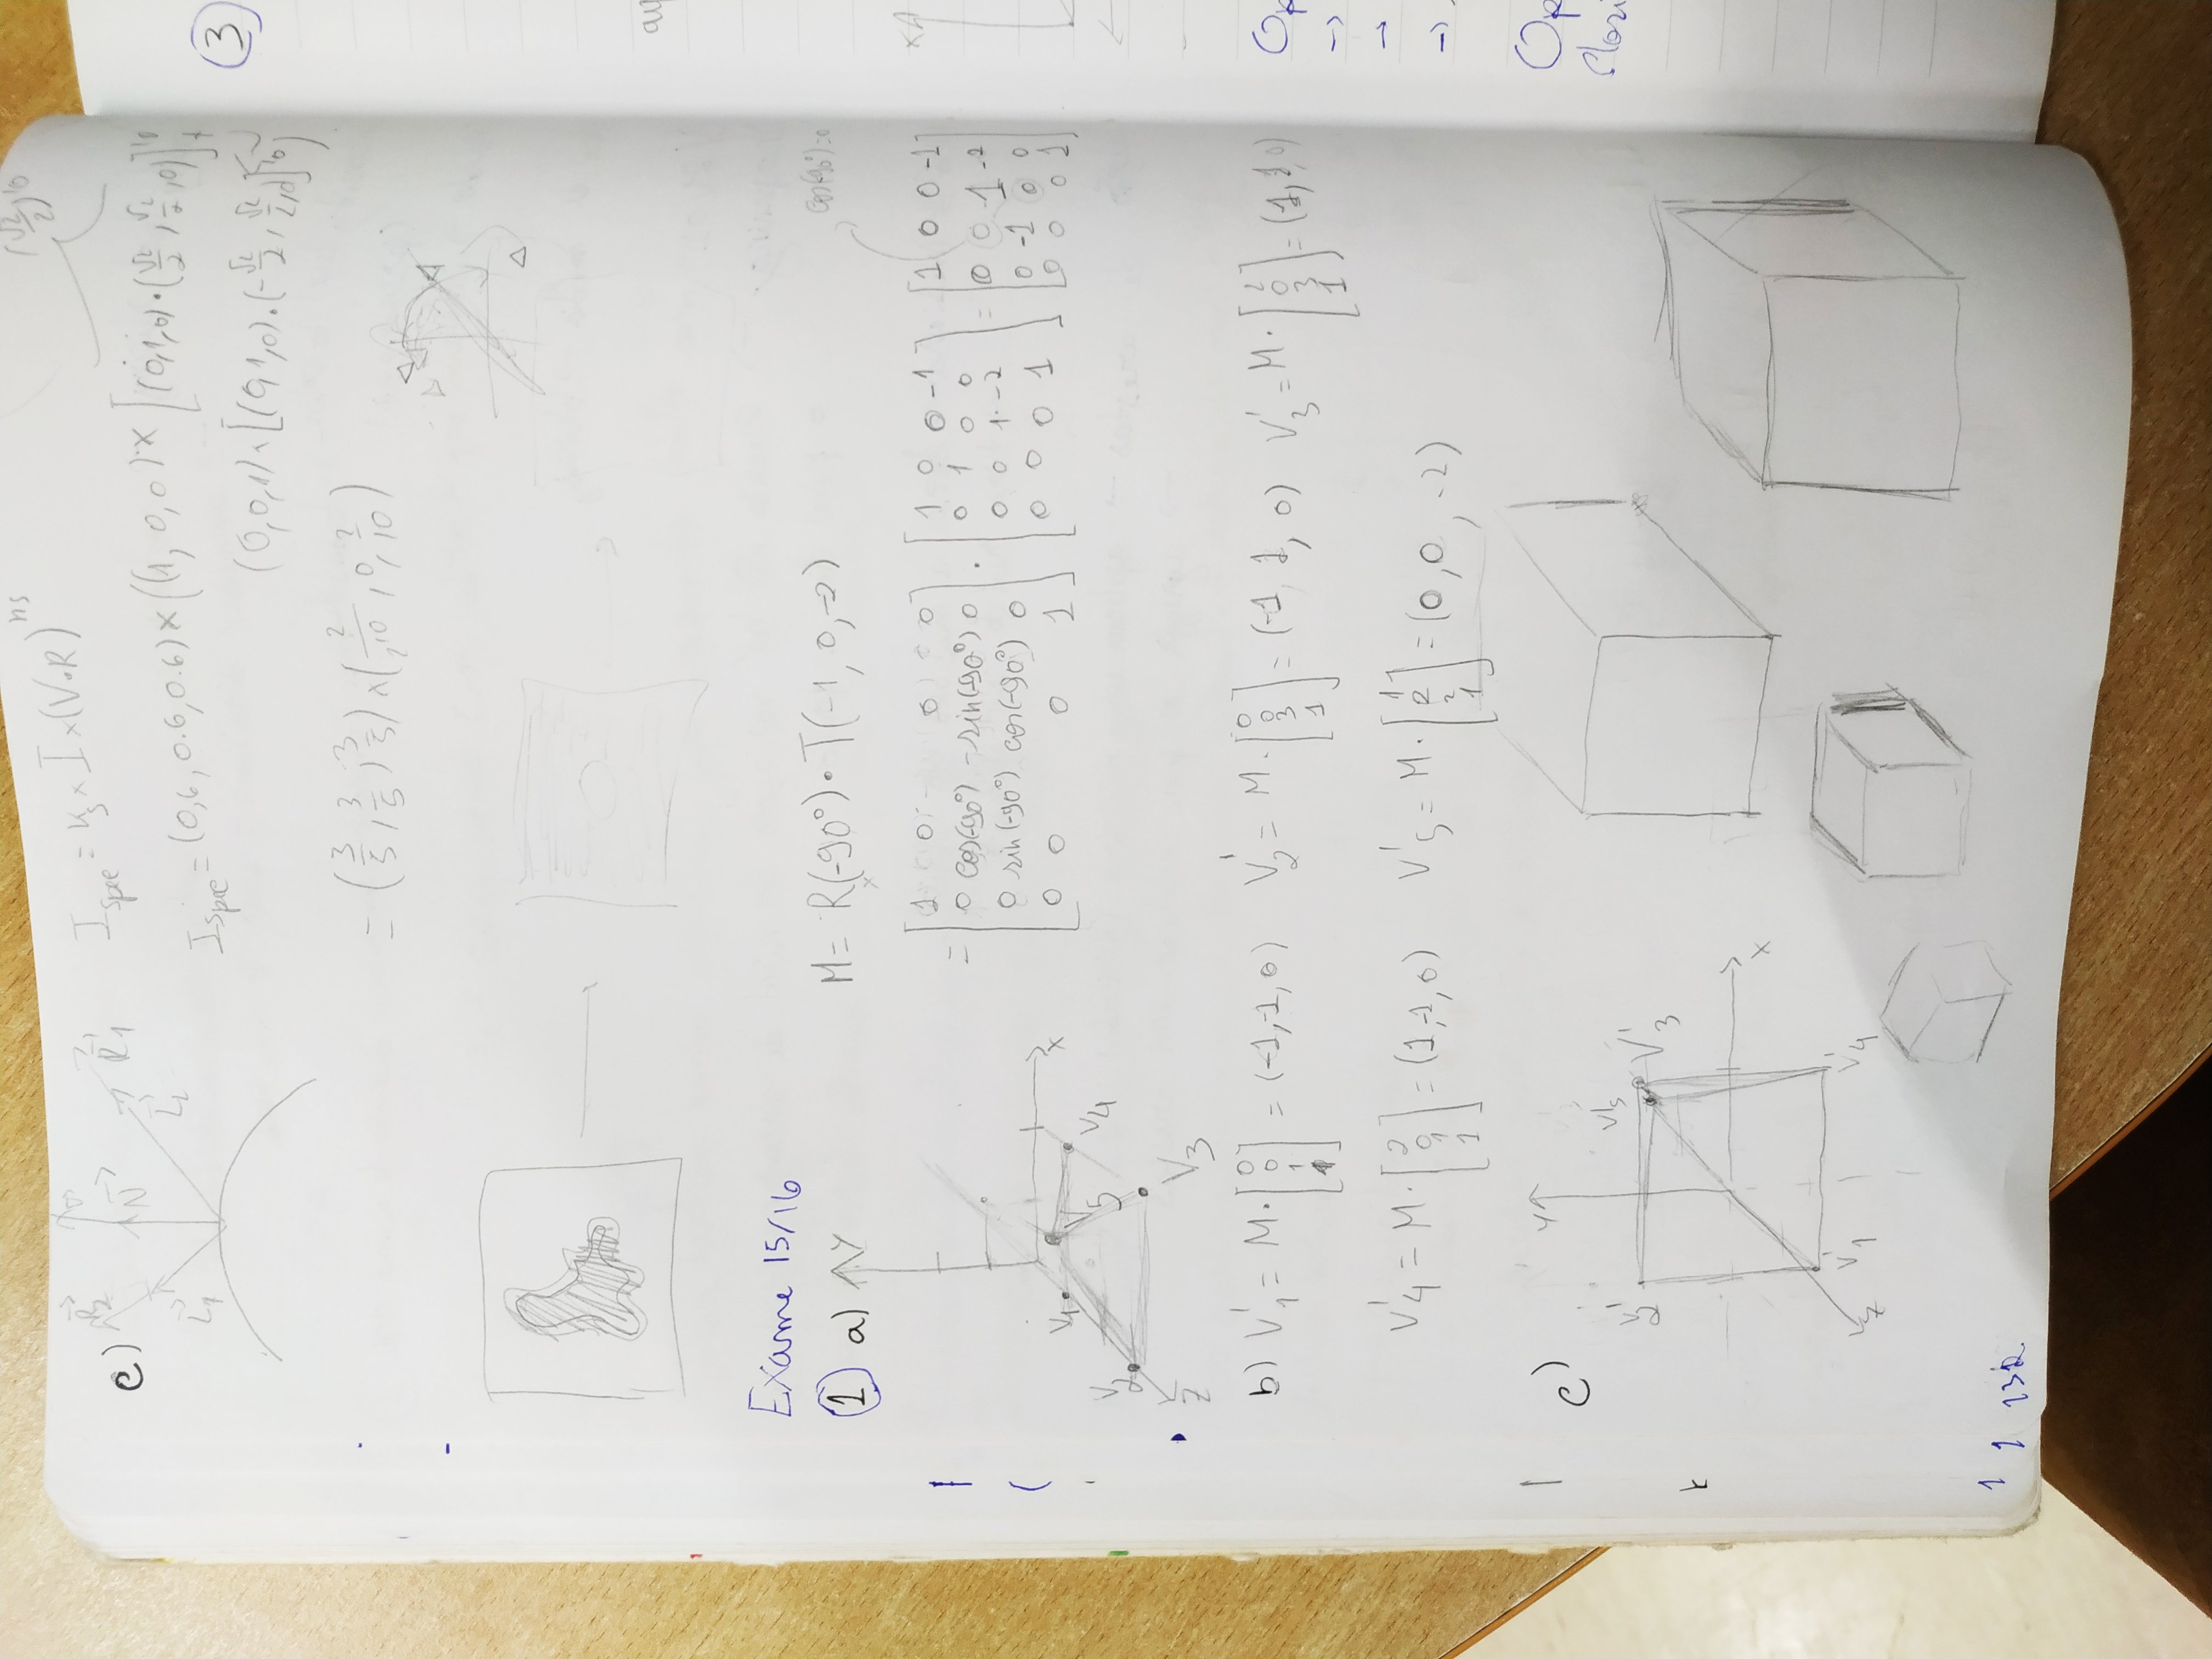 c)
R⃗₂ N⃗ R⃗₁
L⃗₁ L⃗₂
I_spec = k_s × I × (V·R)^ns
(√2/2)^10
I_spec = (0,6, 0.6, 0.6) × ((1, 0, 0) × [(0,1,0)·(√2/2, √2/2, 0)]^10 +
(0,0,1) × [(0,1,0)·(-√2/2, √2/2, 0)]^10)
= (3/5, 3/5, 3/5) × (2/10, 0, 2/10)
Exame 15/16
1 a) Y
M = R_x(-90°) · T(-1, 0, -2)
cos(-90°)=0
= [1 0 0 0
0 cos(-90°) -sin(-90°) 0
0 sin(-90°) cos(-90°) 0
0 0 0 1] · [1 0 0 -1
0 1 0 0
0 0 1 -2
0 0 0 1] = [1 0 0 -1
0 0 1 -2
0 -1 0 0
0 0 0 1]
x
V1 V5 V4
V2
Z V3
b) V'1 = M · [0 0 1 1] = (-1,-1,0) V'2 = M · [0 0 3 1] = (-1, 1, 0) V'3 = M · [2 0 3 1] = (1,1,0)
V'4 = M · [2 0 1 1] = (1,-1,0) V'5 = M · [1 2 2 1] = (0,0,-2)
c) Y
V'2 V'5 V'3
x
z V'1 V'4
1 1 132
3
x
Op
->
->
->
Op